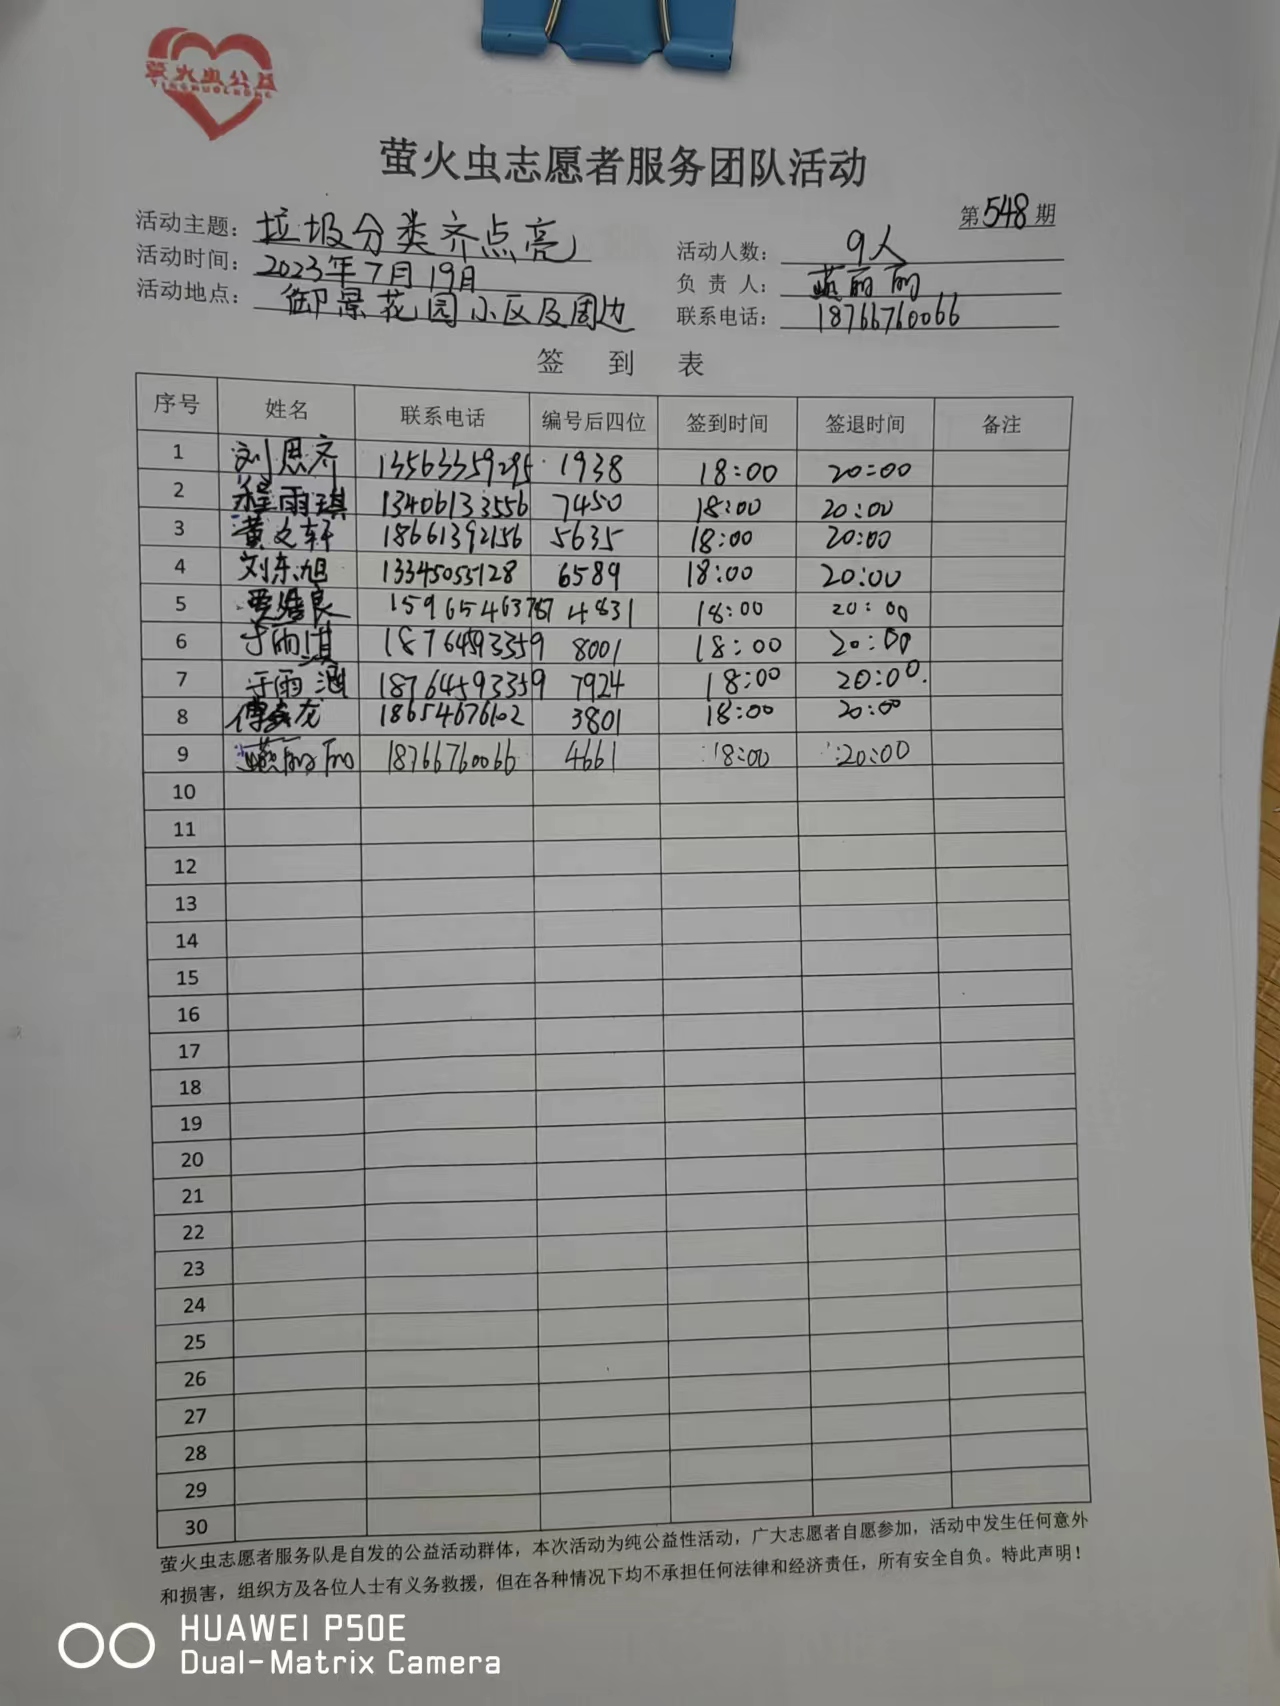 萤火虫公益
YINGHUOCHONG
萤火虫志愿者服务团队活动
第548期
活动主题：垃圾分类齐点亮
活动时间：2023年7月19日
活动地点：御景花园小区及周边
活动人数：9人
负责人：燕丽丽
联系电话：18766760066
签 到 表
序号 姓名 联系电话 编号后四位 签到时间 签退时间 备注
1 刘思齐 13563359295 1938 18:00 20:00
2 程雨琪 13406133556 7450 18:00 20:00
3 黄文轩 18661392156 5635 18:00 20:00
4 刘东旭 13345055128 6589 18:00 20:00
5 15965463787 4831 18:00 20:00
6 于雨淇 18764593359 8001 18:00 20:00
7 于雨涵 18764593359 7924 18:00 20:00.
8 18654676102 3801 18:00 20:00
9 燕丽丽 18766760066 4661 18:00 20:00
10
11
12
13
14
15
16
17
18
19
20
21
22
23
24
25
26
27
28
29
30
萤火虫志愿者服务队是自发的公益活动群体，本次活动为纯公益性活动，广大志愿者自愿参加，活动中发生任何意外
和损害，组织方及各位人士有义务救援，但在各种情况下均不承担任何法律和经济责任，所有安全自负。特此声明！
HUAWEI P50E
Dual-Matrix Camera